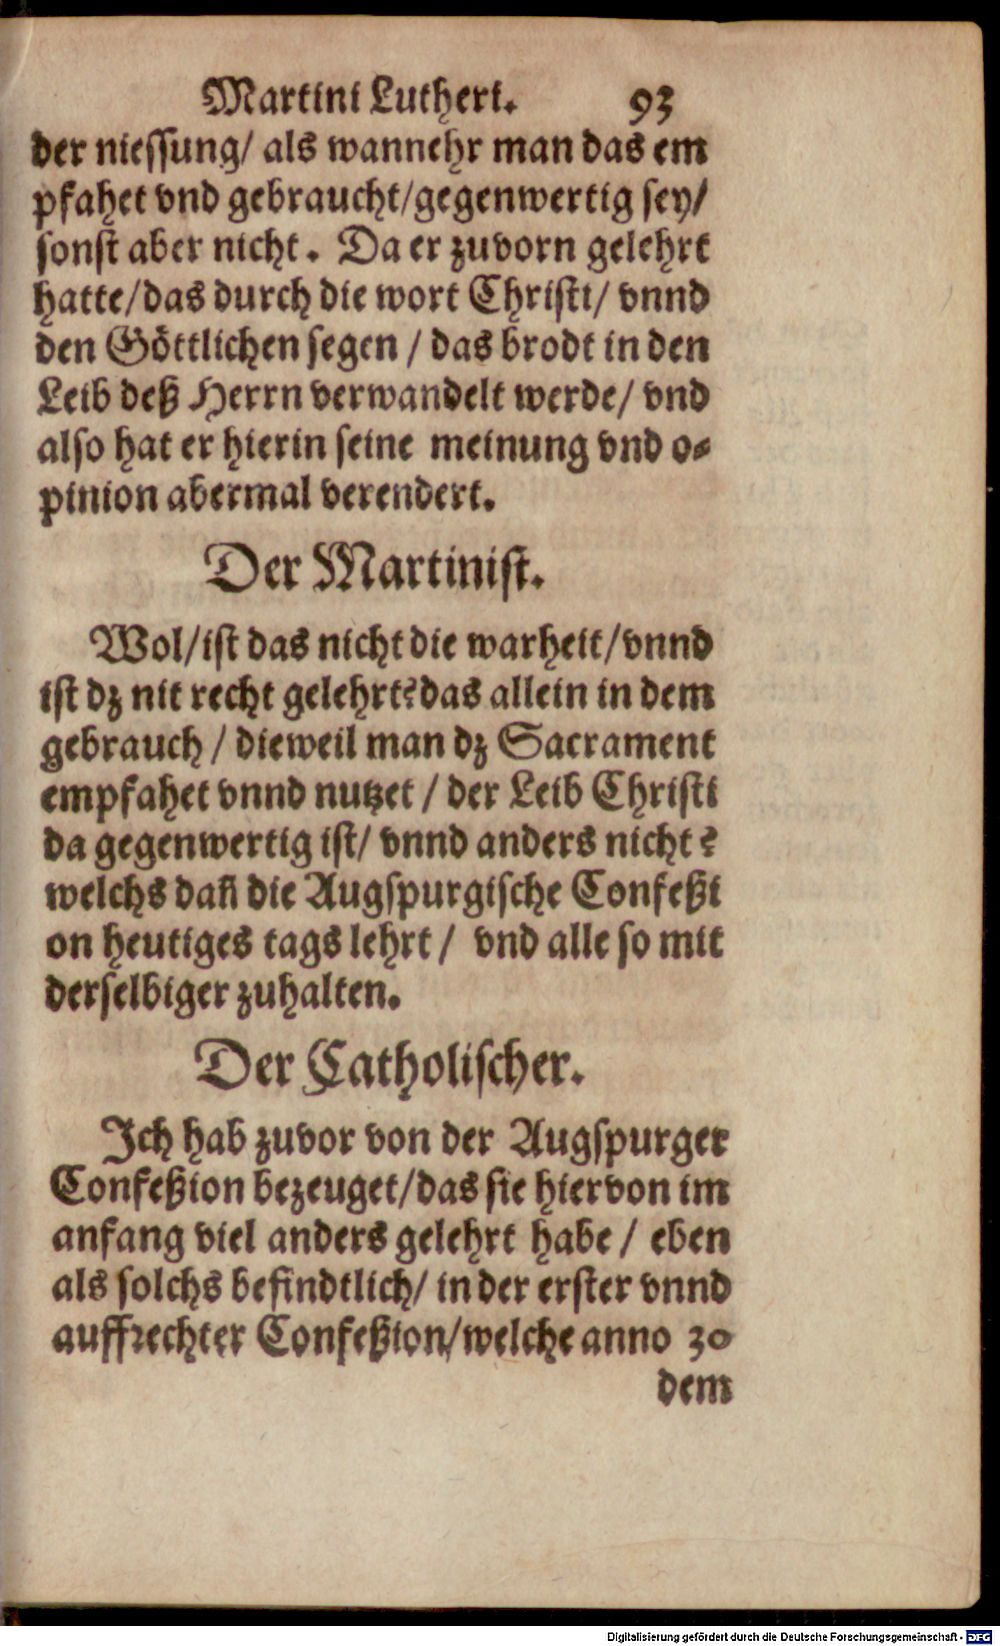 Martini Lutheri. 93
der niessung/ als wannehr man das em
pfahet vnd gebraucht/gegenwertig sey/
sonst aber nicht. Da er zuvorn gelehrt
hatte/das durch die wort Christi/ vnnd
den Göttlichen segen / das brodt in den
Leib deß Herrn verwandelt werde/ vnd
also hat er hierin seine meinung vnd o⸗
pinion abermal verendert.
Der Martinist.
Wol/ist das nicht die warheit/vnnd
ist dz nit recht gelehrt? das allein in dem
gebrauch / dieweil man dz Sacrament
empfahet vnnd nutzet / der Leib Christi
da gegenwertig ist/ vnnd anders nicht?
welchs dañ die Augspurgische Confeßi
on heutiges tags lehrt / vnd alle so mit
derselbiger zuhalten.
Der Catholischer.
Ich hab zuvor von der Augspurger
Confeßion bezeuget/das sie hiervon im
anfang viel anders gelehrt habe / eben
als solchs befindtlich/ in der erster vnnd
auffrechter Confeßion/welche anno 30
dem
Digitalisierung gefördert durch die Deutsche Forschungsgemeinschaft - DFG